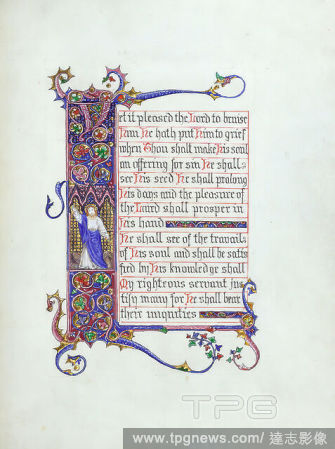 Yet it pleased the Lord to bruise
Him He hath put Him to grief
when Thou shall make His soul
an offering for sin He shall
see His seed He shall prolong
His days and the pleasure of
the Lord shall prosper in
His hand
He shall see of the travail
of His soul and shall be satis
fied by His knowledge shall
My righteous servant jus
tify many for He shall bear
their iniquities
TPG
www.tpgnews.com/ 達志影像